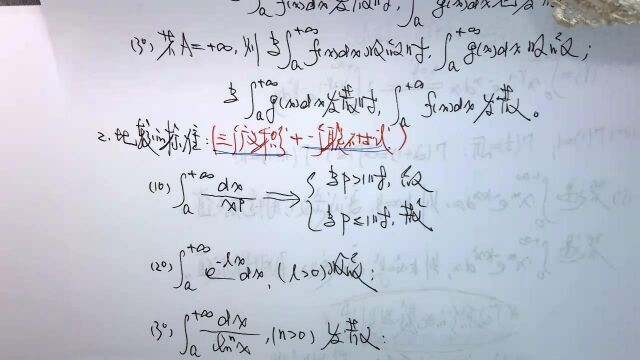 ∫_a^{+∞} f(x)dx 发散时, ∫_a^{+∞} g(x)dx 也发散
(3°) 若A=+∞, 则当∫_a^{+∞} f(x)dx 收敛时, ∫_a^{+∞} g(x)dx 收敛;
当∫_a^{+∞} g(x)dx 发散时, ∫_a^{+∞} f(x)dx 发散。
2. 比较标准:
(1°) ∫_a^{+∞} dx/x^p ⟹ { 当p>1时, 收敛
当p≤1时, 发散
(2°) ∫_a^{+∞} e^{-lx}dx, (l>0) 收敛;
(3°) ∫_a^{+∞} dx/ln^n x, (n>0) 发散;